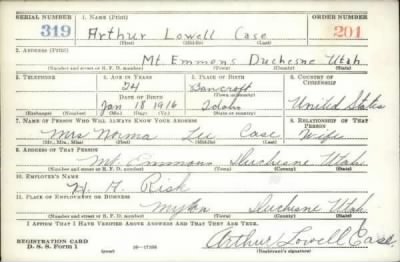 SERIAL NUMBER 1. NAME (Print) ORDER NUMBER
319 Arthur Lowell Case 201
(First) (Middle) (Last)
2. ADDRESS (Print)
Mt. Emmons Duchesne Utah
(Number and street or R. F. D. number) (Town) (County) (State)
3. TELEPHONE 4. AGE IN YEARS 5. PLACE OF BIRTH 6. COUNTRY OF CITIZENSHIP
24 Bancroft
DATE OF BIRTH (Town or county) United States
Jan 18 1916 Idaho
(Exchange) (Number) (Mo.) (Day) (Yr.) (State or country)
7. NAME OF PERSON WHO WILL ALWAYS KNOW YOUR ADDRESS 8. RELATIONSHIP OF THAT PERSON
Mrs Norma Lee Case Wife
(Mr., Mrs., Miss) (First) (Middle) (Last)
9. ADDRESS OF THAT PERSON
Mt. Emmons Duchesne Utah
(Number and street or R. F. D. number) (Town) (County) (State)
10. EMPLOYER'S NAME
H. G. Risk
11. PLACE OF EMPLOYMENT OR BUSINESS
Myton Duchesne Utah
(Number and street or R. F. D. number) (Town) (County) (State)
I AFFIRM THAT I HAVE VERIFIED ABOVE ANSWERS AND THAT THEY ARE TRUE.
REGISTRATION CARD
D. S. S. Form 1 Arthur Lowell Case
(over) (Registrant's signature)